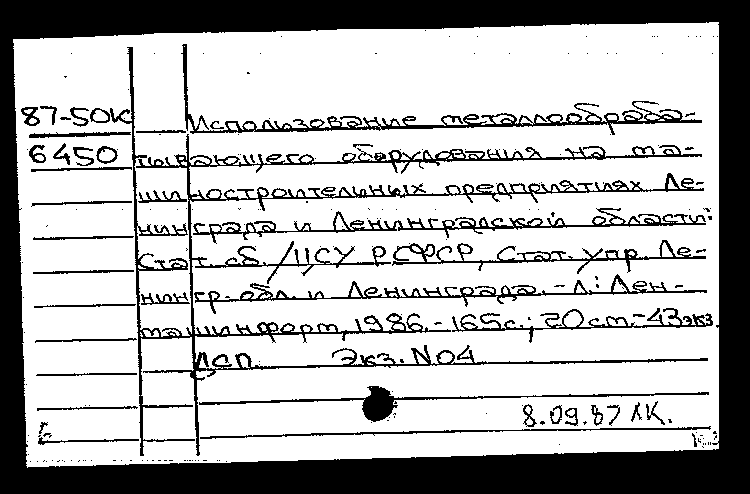 87-50К Использование металлообраба-
6450 тывающего оборудования на ма-
шиностроительных предприятиях Ле-
нинграда и Ленинградской области:
Стат. сб. / ЦСУ РСФСР, Стат. упр. Ле-
нингр. обл. и Ленинграда. - Л.: Лен-
машинформ, 1986. - 165с.; 20см. - 43экз.
ДСП Экз. N04
8.09.87 ЛК.